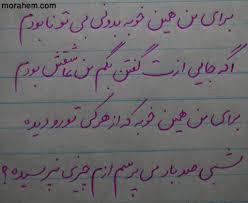 morahem.com
برای من همین خوبه بدونی بی تو نابودم
اگه جایی ازت گفتن بگم من عاشقش بودم
برای من همین خوبه که از هرکی تورو دیده
شبی صد بار می پرسم ازم چیزی نپرسیده؟